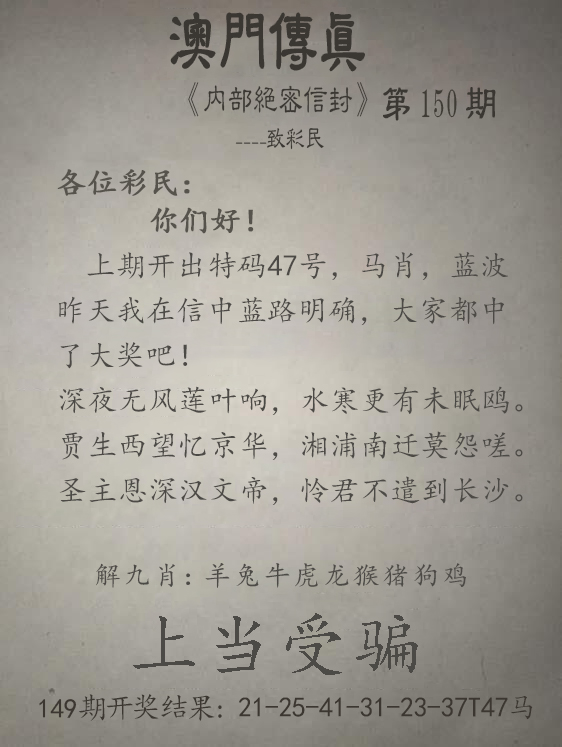 澳門傳真
《内部絕密信封》第150期
----致彩民
各位彩民：
你们好！
上期开出特码47号，马肖，蓝波
昨天我在信中蓝路明确，大家都中
了大奖吧！
深夜无风莲叶响，水寒更有未眠鸥。
贾生西望忆京华，湘浦南迁莫怨嗟。
圣主恩深汉文帝，怜君不遣到长沙。
解九肖：羊兔牛虎龙猴猪狗鸡
上当受骗
149期开奖结果：21-25-41-31-23-37T47马